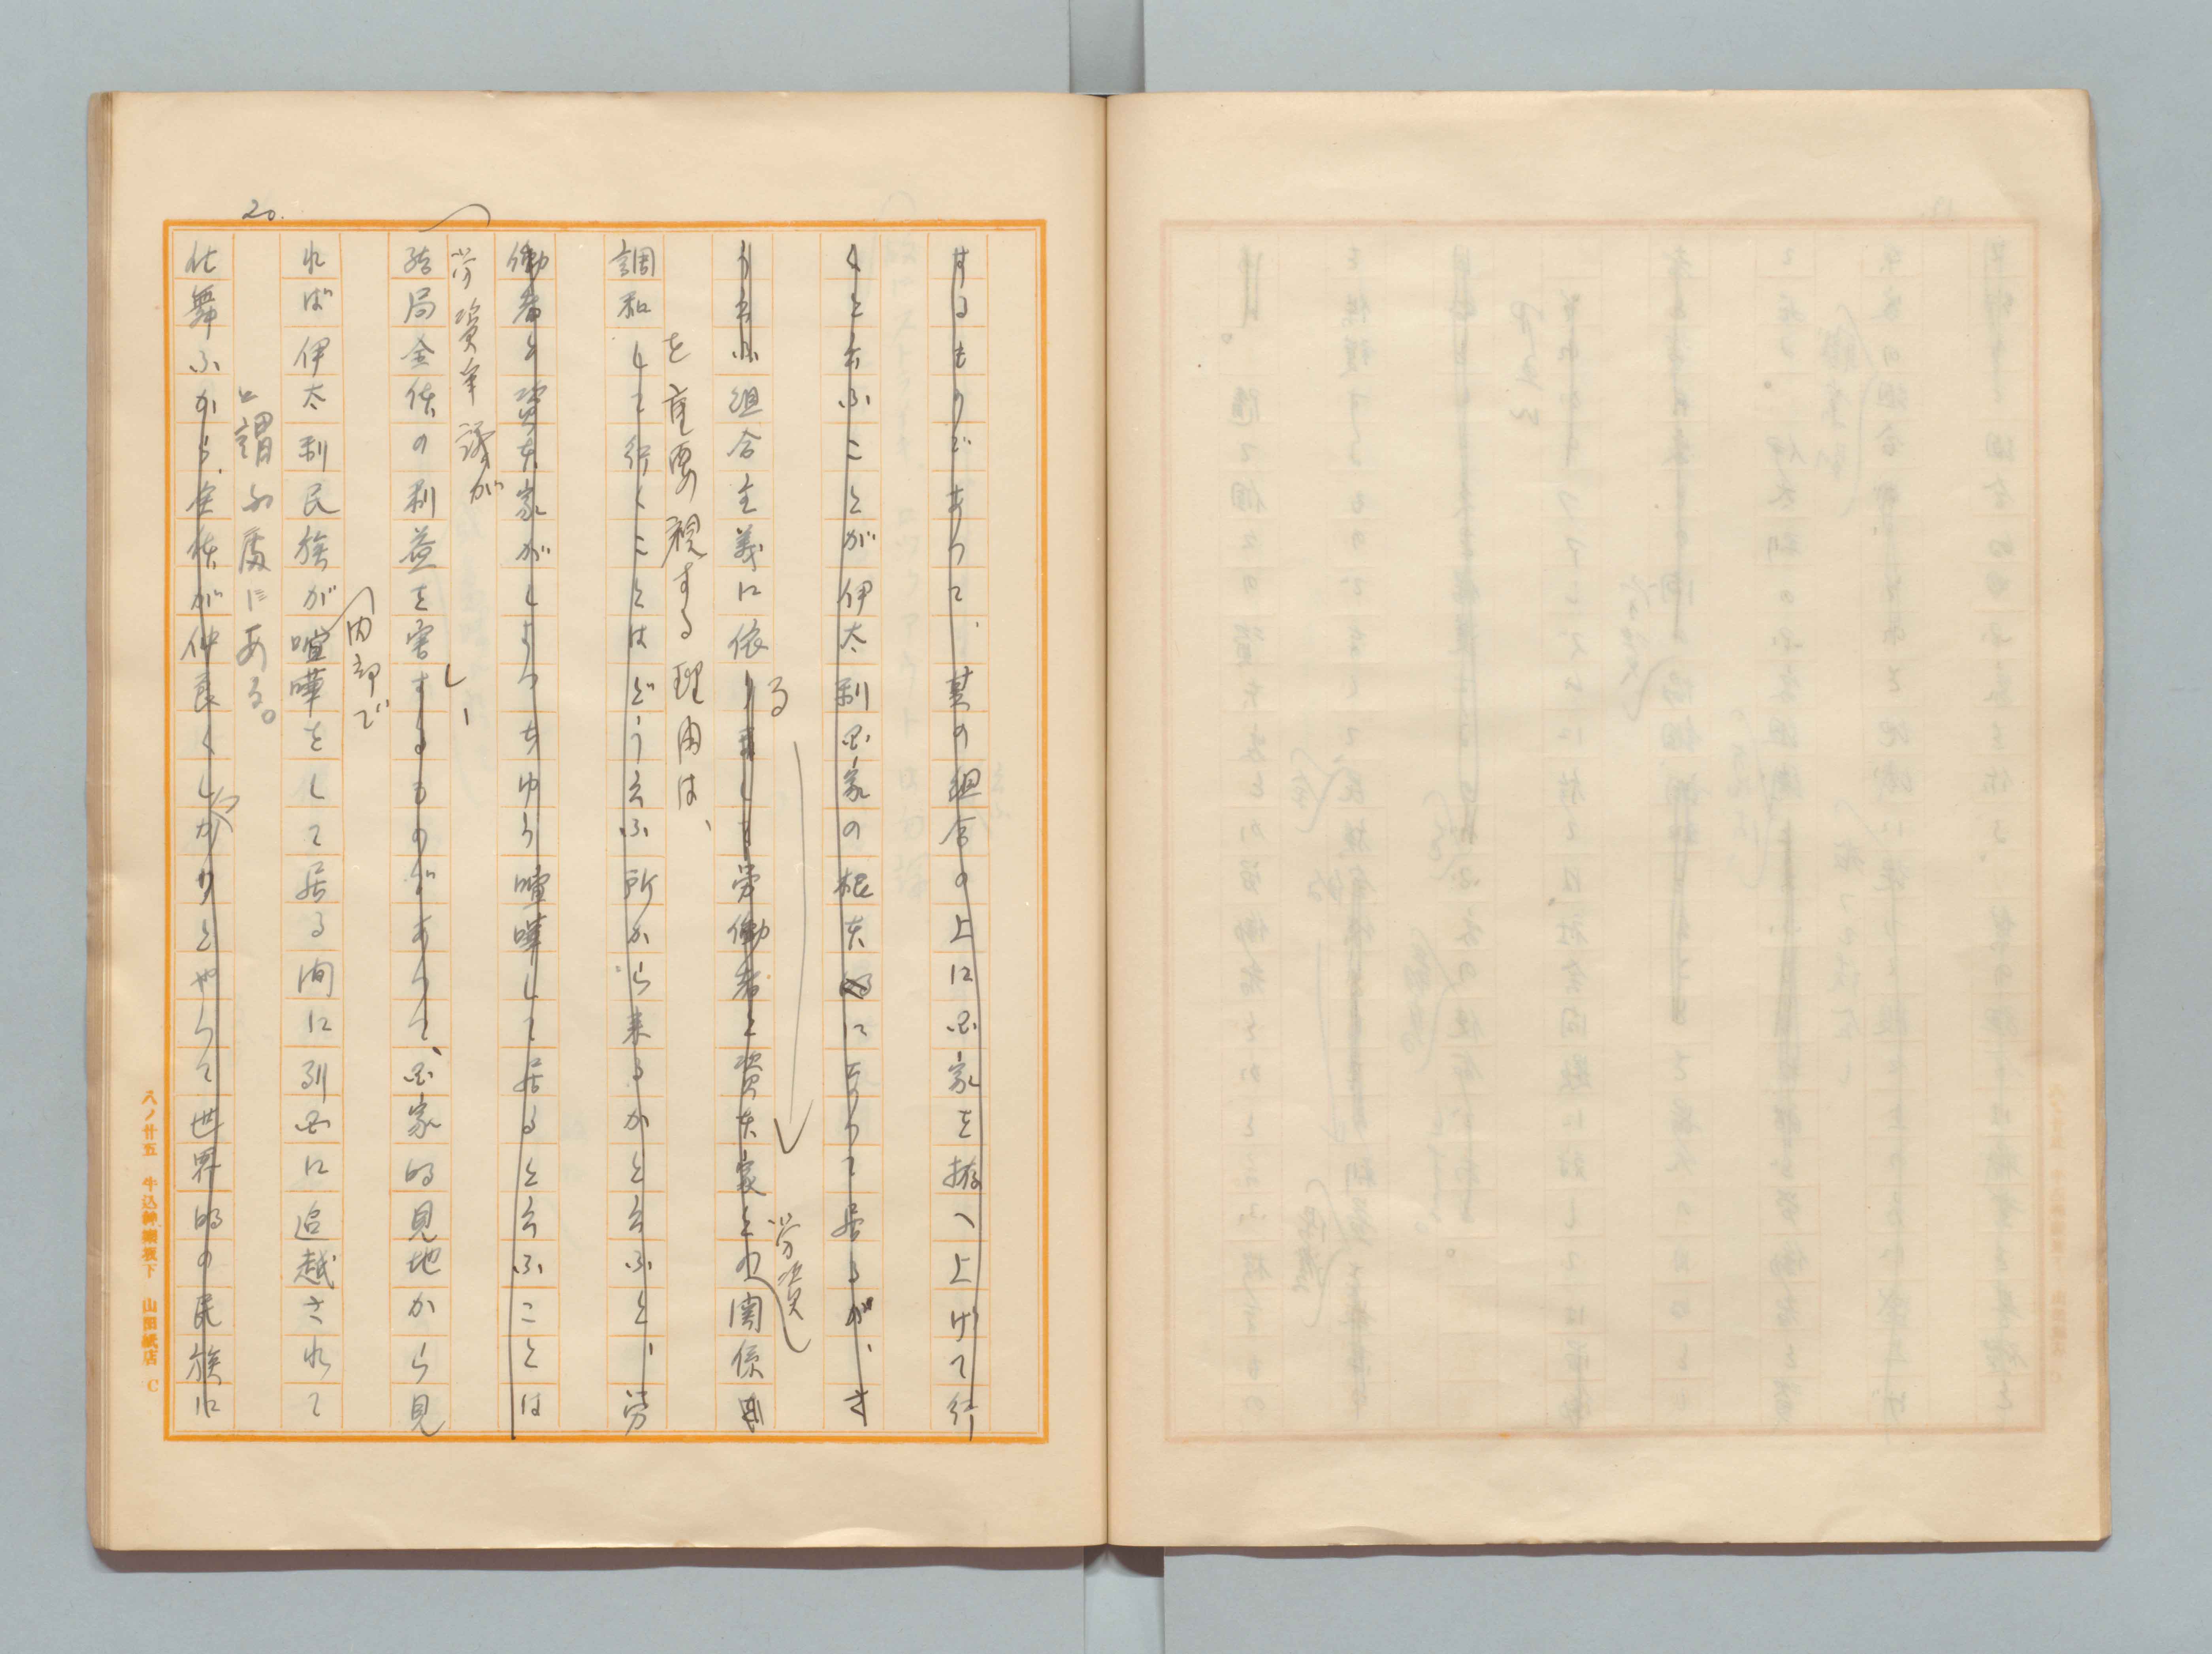 20.
せるものであつて、其の組合の上に国家を拵へ上げて行
くと云ふことが伊太利国家の根本的になつて居るが、さ
う云ふ組合主義に依りまして労働者と資本家との関係
る
労資
を重要視する理由は、
調和して行くことはどう云ふ所から来るかと云ふと、労
働者と資本家がしよつちゆう喧嘩して居ると云ふことは
労資争議が
結局全体の利益を害するものであつて、国家的見地から見
し、
内部で
れば伊太利民族が喧嘩をして居る間に列国に追越されて
と謂ふ処にある。
仕舞ふから、全体が仲良くしつかりとやつて世界的の民族に
八ノ廿五 牛込神楽坂下 山田紙店 C